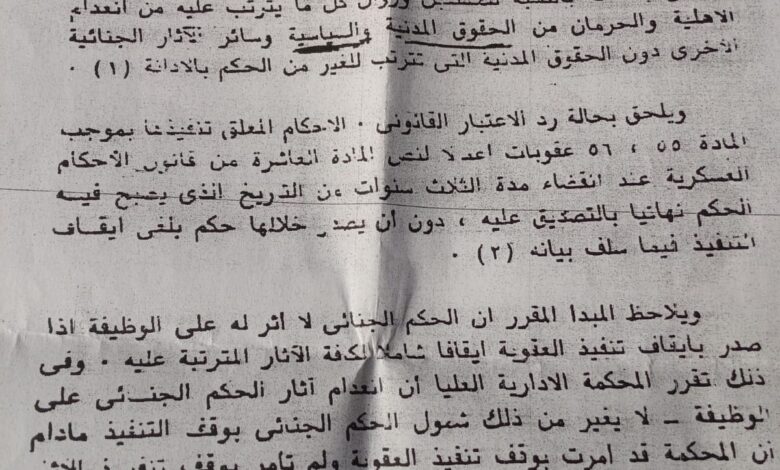 بالنسبة للمستقبل وزوال كل ما يترتب عليه من انعدام
الاهلية والحرمان من الحقوق المدنية والسياسية وسائر الآثار الجنائية
الأخرى دون الحقوق المدنية التى تترتب للغير من الحكم بالادانة (١) ٠
ويلحق بحالة رد الاعتبار القانونى ٠ الاحكام المعلق تنفيذها بموجب
المادة ٥٥ ، ٥٦ عقوبات اعملا لنص المادة العاشرة من قانون الأحكام
العسكرية عند انقضاء مدة الثلاث سنوات من التاريخ الذى يصبح فيه
الحكم نهائيا بالتصديق عليه ، دون أن يصدر خلالها حكم بلغى ايقاف
التنفيذ فيما سلف بيانه (٢) ٠
ويلاحظ المبدا المقرر ان الحكم الجنائى لا أثر له على الوظيفة اذا
صدر بايقاف تنفيذ العقوبة ايقافا شاملا لكافة الآثار المترتبة عليه ٠ وفى
ذلك تقرر المحكمة الادارية العليا أن انعدام آثار الحكم الجنائى على
الوظيفة – لا يغير من ذلك شمول الحكم الجنائى بوقف التنفيذ مادام
إن المحكمة قد امرت بوقف تنفيذ العقوبة ولم تأمر بوقف تنفيذ